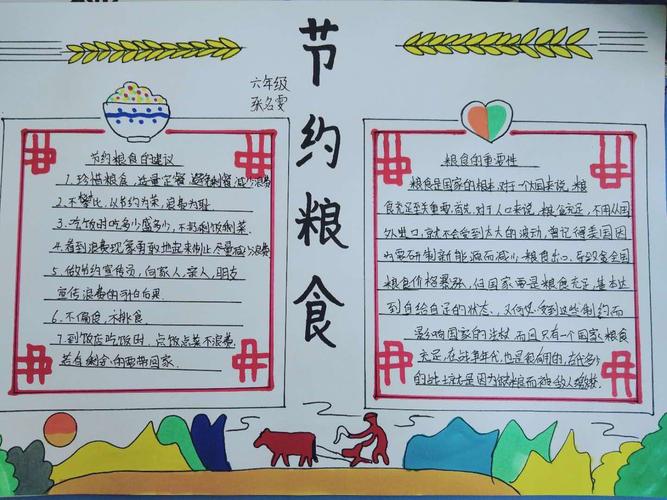 节约粮食
六年级
张名雯
节约粮食的建议
1.珍惜粮食,适量定餐,避免剩餐,减少浪费
2.不攀比,以节约为荣,浪费为耻
3.吃饭时吃多少盛多少,不扔剩饭剩菜.
4.看到浪费现象勇敢地起来制止,尽量减少浪费
5.做节约宣传员,向家人,亲人,朋友
宣传浪费的不良后果.
6.不偏食,不挑食.
7.到饭店吃饭时,点饭点菜不浪费.
若有剩余的要带回家.
粮食的重要性
粮食是国家的根本.对于一个国来说,粮
食充足至关重要.首先,对于人口来说,粮食充足,不用从国
外进口,就不会受到太大的波动,曾记得美国因
为要研制新能源而减少粮食出口,导致全国
粮食价格暴涨,但国家要是粮食充足,基本达
到自给自足的状态,又何必受到这些制约而
影响国家的主权,而且只有一个国家,粮食
充足,在战争年代,也是很有用的,古代多少
的战士就是因为缺粮而被敌人